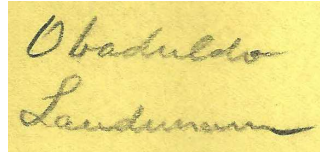 Obaduldo
Laudemann